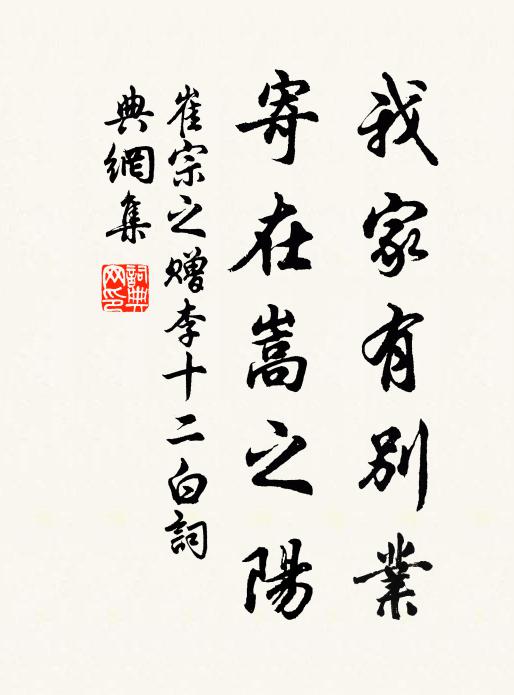 我家有別業
寄在嵩之陽
崔宗之贈李十二白詞
典網集
詞典
网印